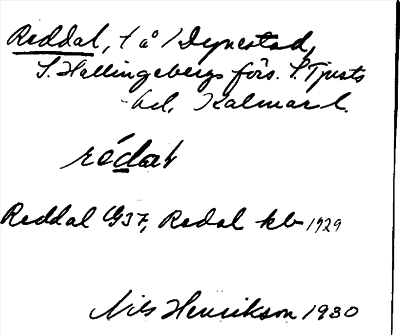 Reddal, t å Dynestad,
S. Hallingebergs förs. S. Tjusts
hd. Kalmar l.
rédat
Reddal G37, Redal kb 1929
Nils Henrikson 1930